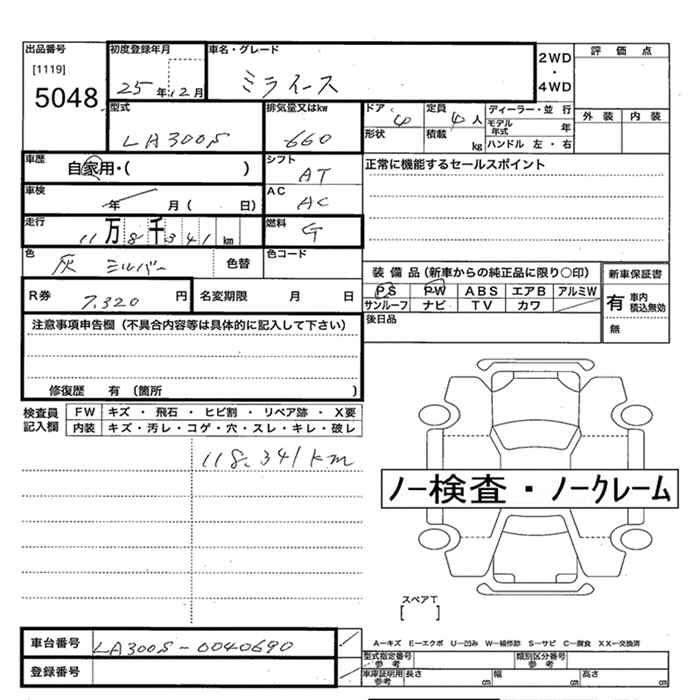 出品番号 初度登録年月 車名・グレード 2WD・4WD 評価点
[1119]
5048 25年12月 ミライース
型式 排気量又はkw ドア 4 定員 4人 ディーラー・並行 外装 内装
LA300S 660 形状 積載 kg モデル年式 年 ハンドル 左・右
車歴 自家用・( ) シフト AT 正常に機能するセールスポイント
車検 年 月( 日) AC AC
走行 11万8千341km 燃料 G
色 灰 シルバー 色替 色コード
装備品(新車からの純正品に限り○印) 新車保証書
R券 7.320円 名変期限 月 日 PS PW ABS エアB アルミW 有 車内積込無効
サンルーフ ナビ TV カワ 無
注意事項申告欄(不具合内容等は具体的に記入して下さい) 後日品
修復歴 有(箇所 )
検査員記入欄 FW キズ・飛石・ヒビ割・リペア跡・X要
内装 キズ・汚レ・コゲ・穴・スレ・キレ・破レ
118.341km
ノー検査・ノークレーム
スペアT
[ ]
車台番号 LA300S-0040690 A−キズ E−エクボ U−凹み W−補修跡 S−サビ C−腐食 XX−交換済
型式指定番号 参考 類別区分番号 参考
登録番号 車庫証明用 参考 長さ cm 幅 cm 高さ cm